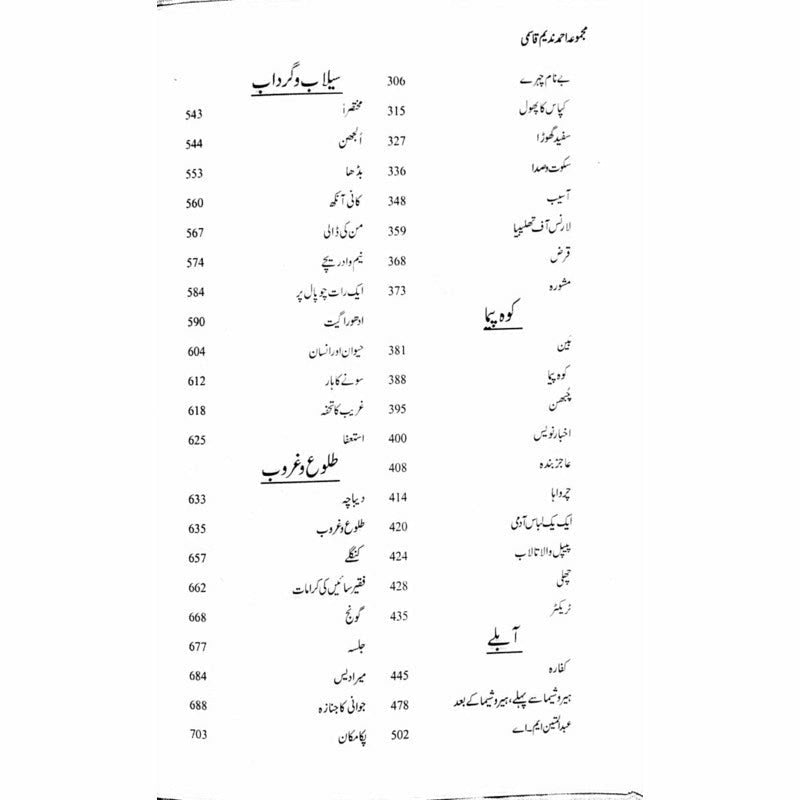 مجموعہ احمد ندیم قاسمی
بے نام چہرے 306
کپاس کا پھول 315
سفید گھوڑا 327
سکوت و صدا 336
آسیب 348
لارنس آف تھلیبیا 359
قرض 368
مشورہ 373
کوہ پیما
بَین 381
کوہ پیما 388
چُبھن 395
اخبار نویس 400
عاجز بندہ 408
چرواہا 414
ایک یک لباس آدمی 420
پیپل والا تالاب 424
چھلی 428
ٹریکٹر 435
آبلے
کفارہ 445
ہیروشیما سے پہلے، ہیروشیما کے بعد 478
عبدالمتین ایم۔اے 502
سیلاب و گرداب
مختصراً 543
اُلجھن 544
بڈھا 553
کانی آنکھ 560
من کی ڈالی 567
نیم وا دریچے 574
ایک رات چوپال پر 584
ادھورا گیت 590
حیوان اور انسان 604
سونے کا ہار 612
غریب کا تحفہ 618
استعفا 625
طلوع و غروب
دیباچہ 633
طلوع و غروب 635
کنگلے 657
فقیر سائیں کی کرامات 662
گونج 668
جلسہ 677
میرا دیس 684
جوانی کا جنازہ 688
پکا مکان 703